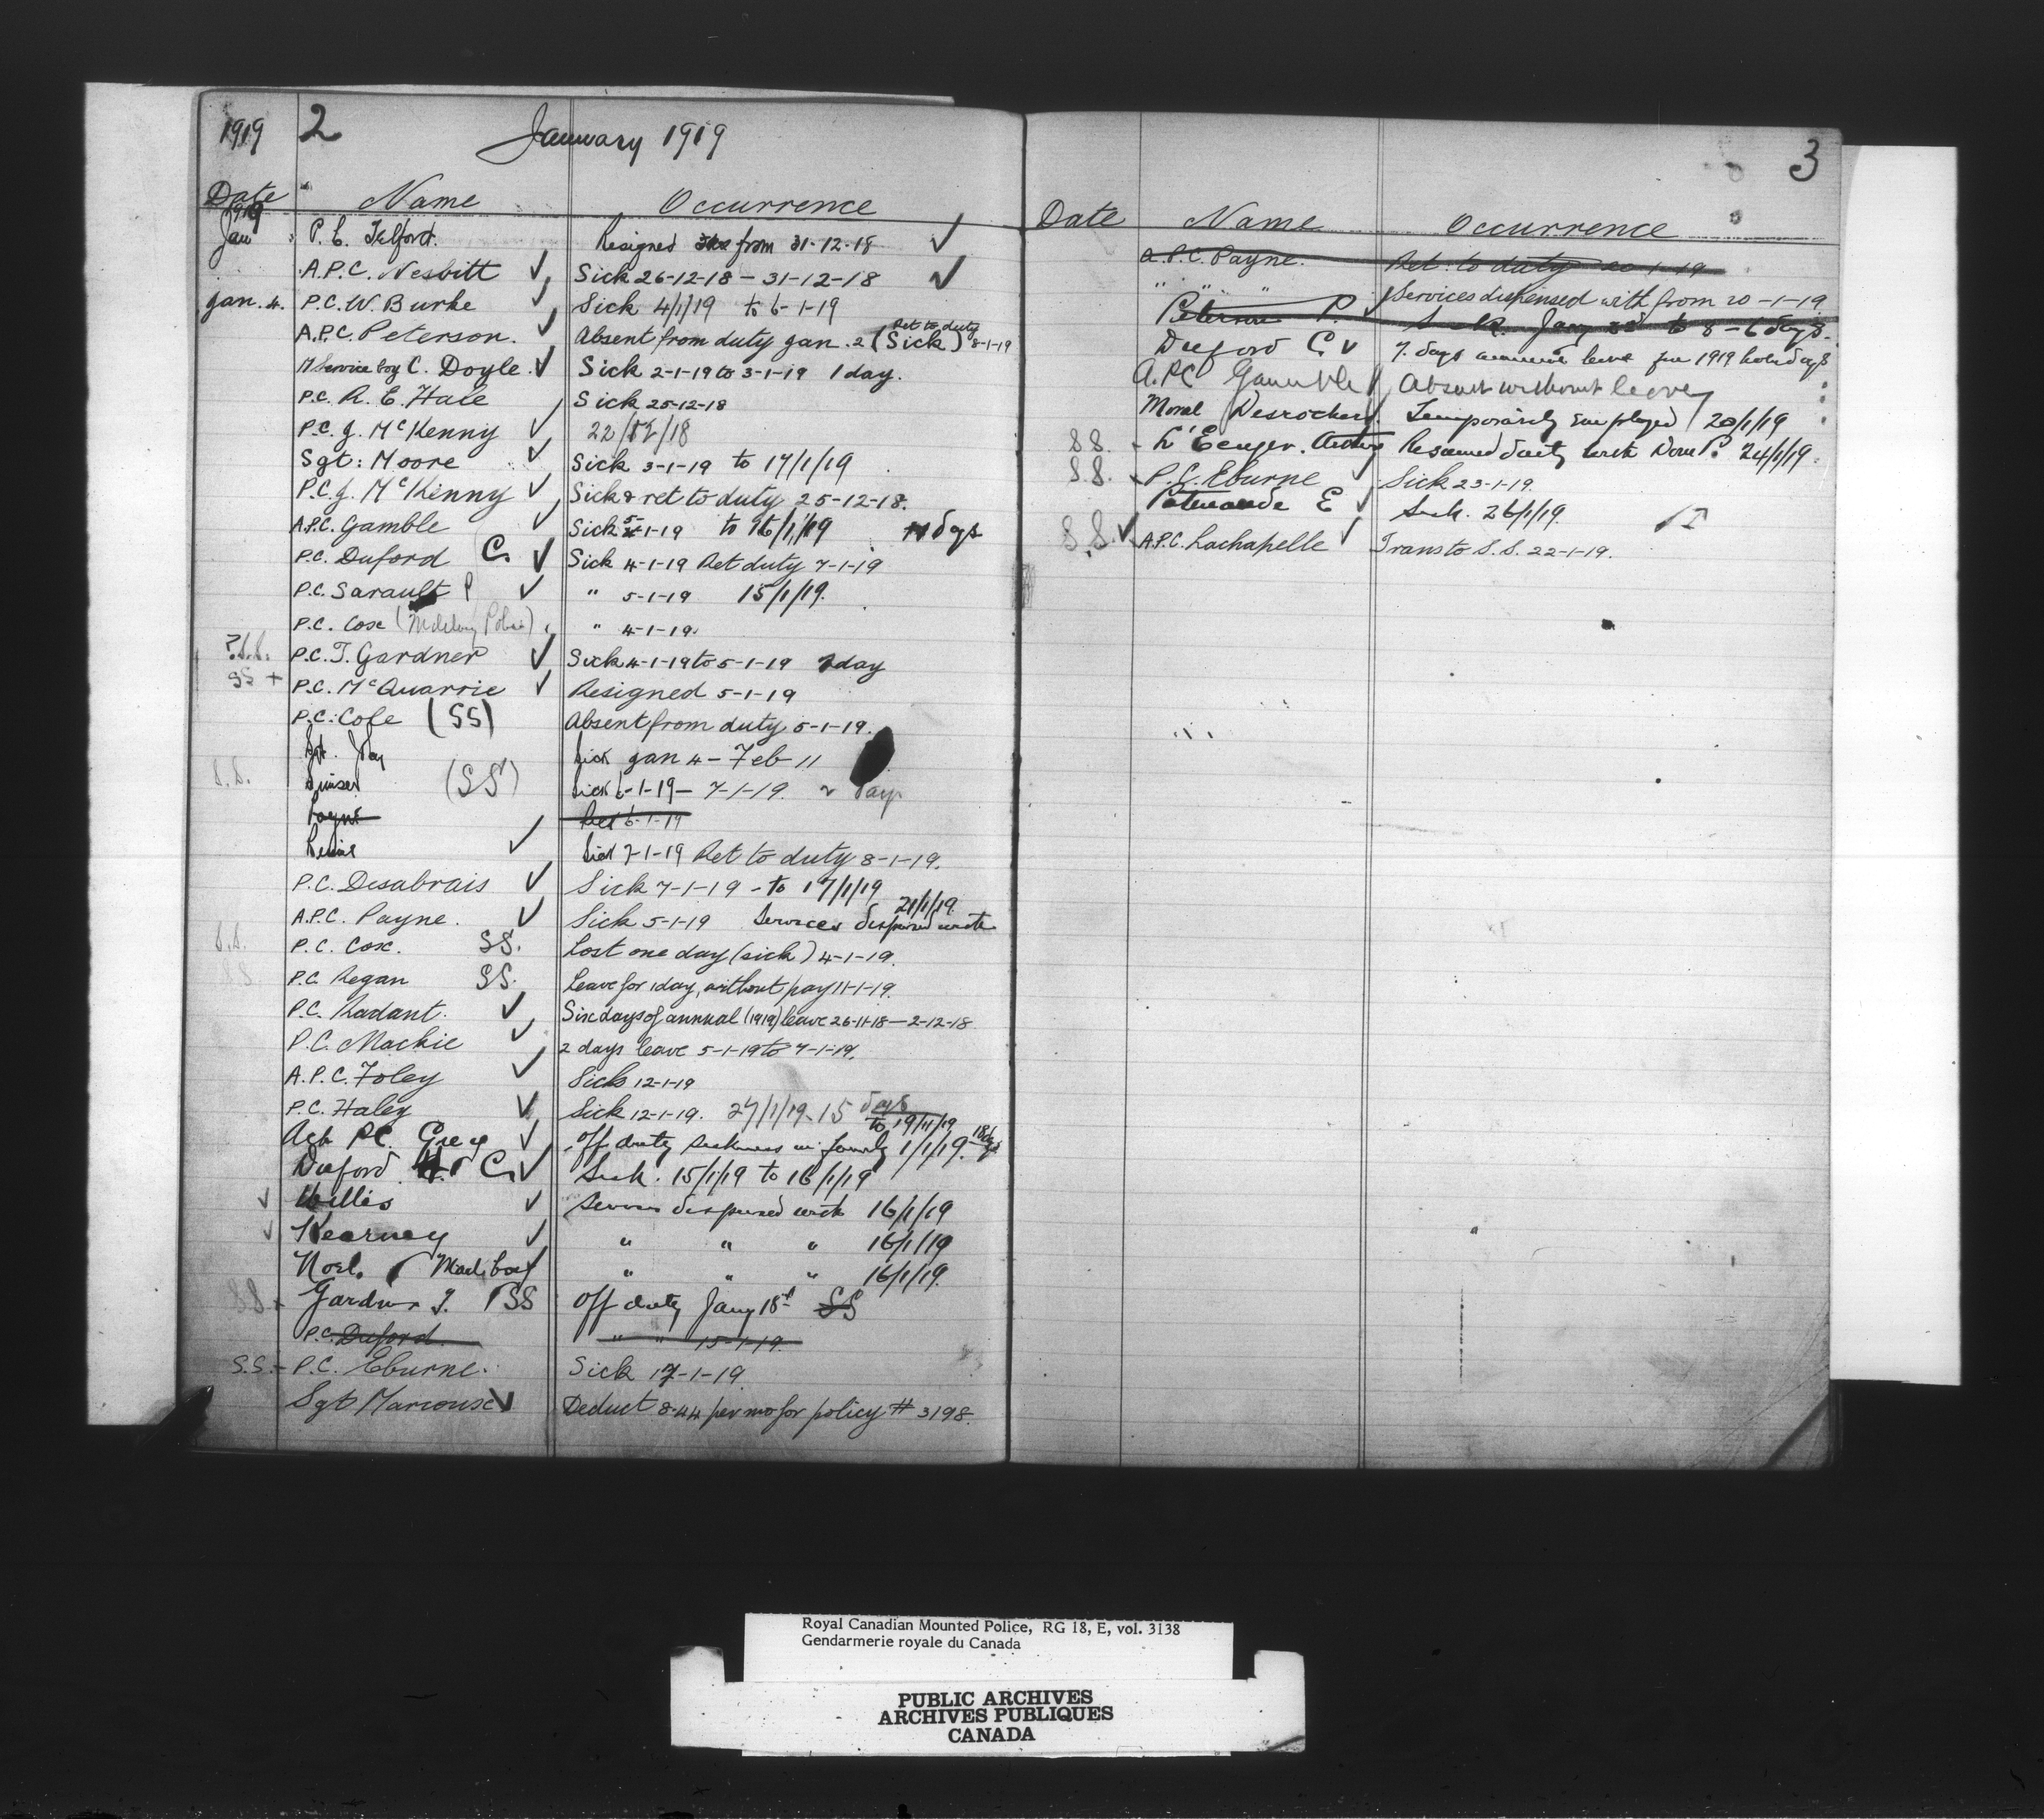 1919 2 January 1919
Date Name Occurrence
1919
Jan P. C. Telford. Resigned from 31-12-18 ✓
A.P.C. Nesbitt ✓ Sick 26-12-18 — 31-12-18 ✓
Jan. 4. P.C. W. Burke ✓ Sick 4/1/19 to 6-1-19
A.P.C. Peterson. ✓ Absent from duty Jan. 2 (Sick) Ret to duty 8-1-19
M Service boy C. Doyle. ✓ Sick 2-1-19 to 3-1-19 1 day.
P.C. R. E. Hale Sick 25-12-18
P.C. J. McKenny ✓ 22/12/18
Sgt: Moore ✓ Sick 3-1-19 to 17/1/19
P.C. J. McKenny ✓ Sick & ret to duty 25-12-18.
A.P.C. Gamble ✓ Sick 5-1-19 to 16/1/19 11 days
P.C. Duford C. ✓ Sick 4-1-19 Ret duty 7-1-19
P.C. Sarault P ✓ " 5-1-19 15/1/19.
P.C. Cox (Military Police) " 4-1-19.
?S.S. P.C. T. Gardner ✓ Sick 4-1-19 to 5-1-19 1 day
SS + P.C. McQuarrie ✓ Resigned 5-1-19
P.C. Cole (SS) Absent from duty 5-1-19.
Sgt. Day Sick Jan 4 - Feb 11
S.S. (SS) Sick 6-1-19 — 7-1-19. 2 days
Payne Ret 6-1-19
✓ Sick 7-1-19 Ret to duty 8-1-19.
P.C. Desabrais ✓ Sick 7-1-19 - to 17/1/19
A.P.C. Payne. ✓ Sick 5-1-19 Services dispensed with 21/1/19.
S.S. P.C. Cox. SS. Lost one day (sick) 4-1-19.
SS P.C. Regan SS. Leave for 1 day, without pay 11-1-19.
P.C. Radant. ✓ Six days of annual (1919) leave 26-11-18 — 2-12-18
P.C. Mackie ✓ 2 days leave 5-1-19 to 7-1-19.
A.P.C. Foley ✓ Sick 12-1-19
P.C. Haley ✓ Sick 12-1-19. 27/1/19. 15 days
Act PC. Grey ✓ Off duty sickness in family 1/1/19. to 19/1/19 18 days
Duford C. ✓ Sick. 15/1/19 to 16/1/19
✓ Willis ✓ Services dispensed with 16/1/19
✓ Kearney ✓ " " " 16/1/19
Noel. Mail boy " " " 16/1/19.
SS. Gardner T. SS Off duty Jany 18th SS
P.C. Duford " " 15-1-19.
S.S. - P.C. Eburne. Sick 17-1-19
Sgt Marcoux ✓ Deduct 8.44 per mo for policy # 3198.
3
Date Name Occurrence
A.P.C. Payne. Ret. to duty 20-1-19
" " " Services dispensed with from 20-1-19
Peterson P. Sick. Jany 2nd to 8 - 6 days.
Duford C ✓ 7. days annual leave for 1919 holidays
A.P.C Gamble Absent without leave
Desrochers. Temporarily Employed 20/1/19
SS. - L'Ecuyer. Resumed duty with Dom P. 24/1/19.
S.S. P.C. Eburne Sick 23-1-19.
Patenaude E ✓ Sick. 26/1/19.
S.S. ✓ A.P.C. Lachapelle ✓ Trans to S.S. 22-1-19.
Royal Canadian Mounted Police, RG 18, E, vol. 3138
Gendarmerie royale du Canada
PUBLIC ARCHIVES
ARCHIVES PUBLIQUES
CANADA